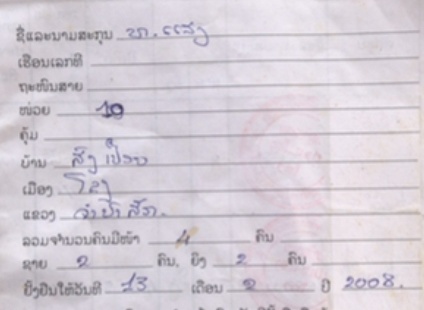 ຊື່ແລະນາມສະກຸນ ທ. ແສງ
ເຮືອນເລກທີ
ຖະໜົນສາຍ
ໜ່ວຍ 10
ຄຸ້ມ
ບ້ານ ສັງ
ເມືອງ ໂຂງ
ແຂວງ ຈຳປາສັກ.
ລວມຈຳນວນຄົນມີໜ້າ 4 ຄົນ
ຊາຍ 2 ຄົນ, ຍິງ 2 ຄົນ
ຢັ້ງຢືນໃຫ້ວັນທີ 13 ເດືອນ 2 ປີ 2008.